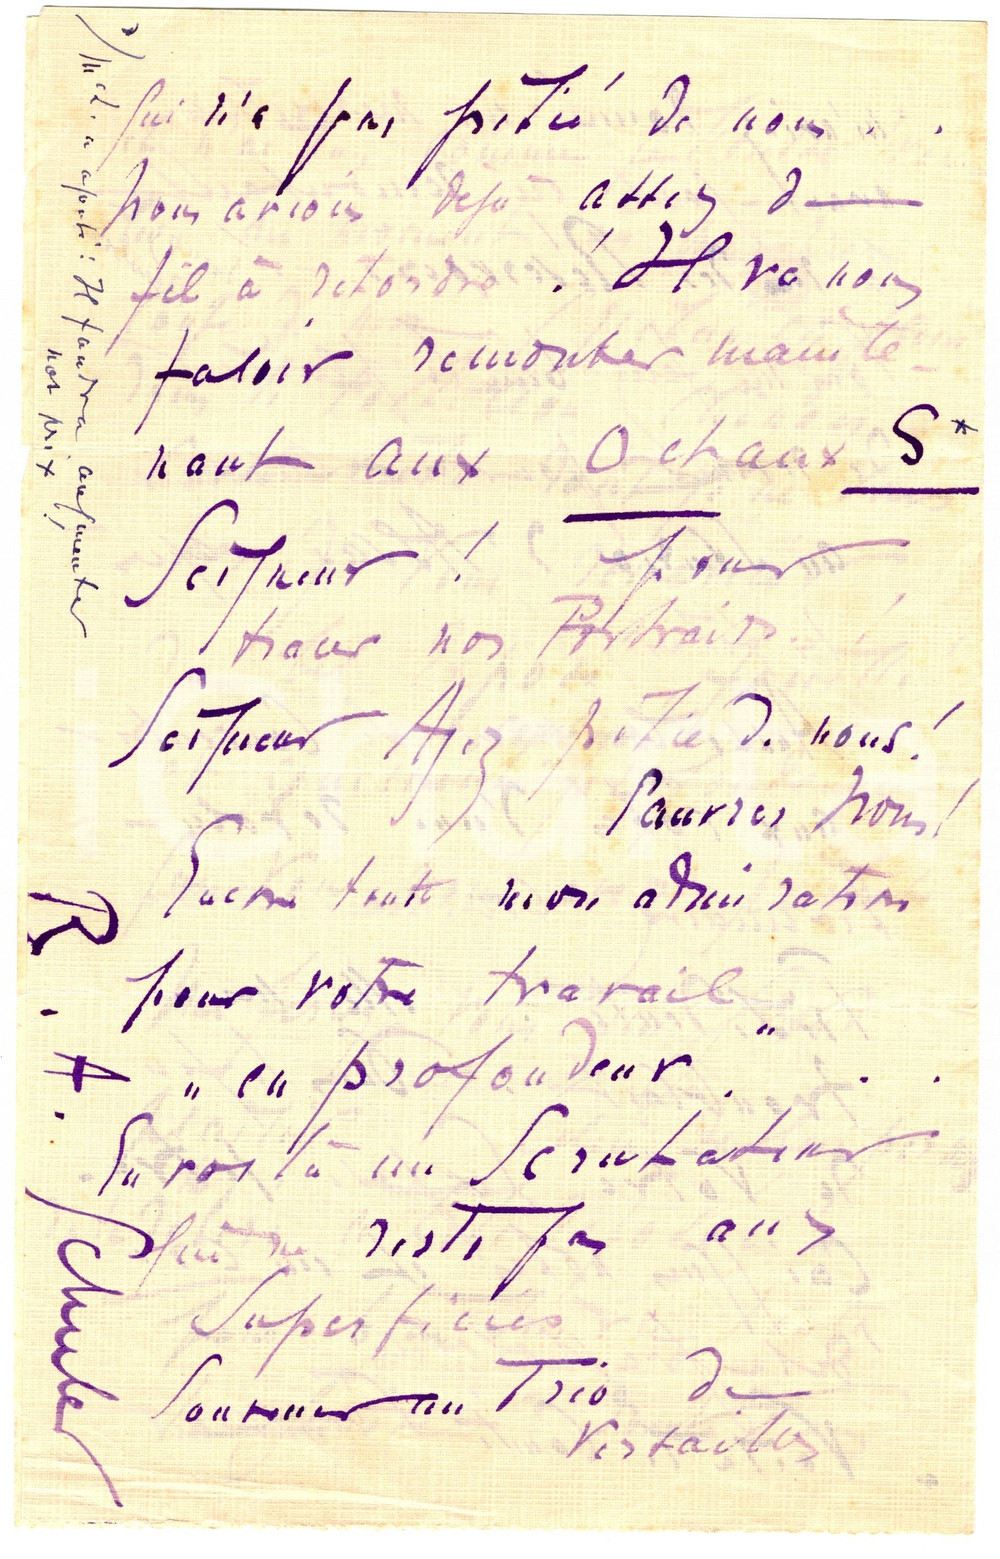 qui n'a pas pitié de nous . .
Nous avions déjà assez de
fil à retordre ! Il va nous
faloir remonter mainte
nant aux Ochaux S*
Seigneur ! pour
tracer nos Portraits.
Seigneur Ayez pitié de nous !
Pauvres Nous !
Encore toute mon admiration
pour votre travail
" en profondeur " . . .
En voilà un Scrutateur
qui ne reste pas aux
Superficies
Souvenir au Trio de
Versailles
R. A. Schuler
a ajouté : Il faudra augmenter
nos prix !